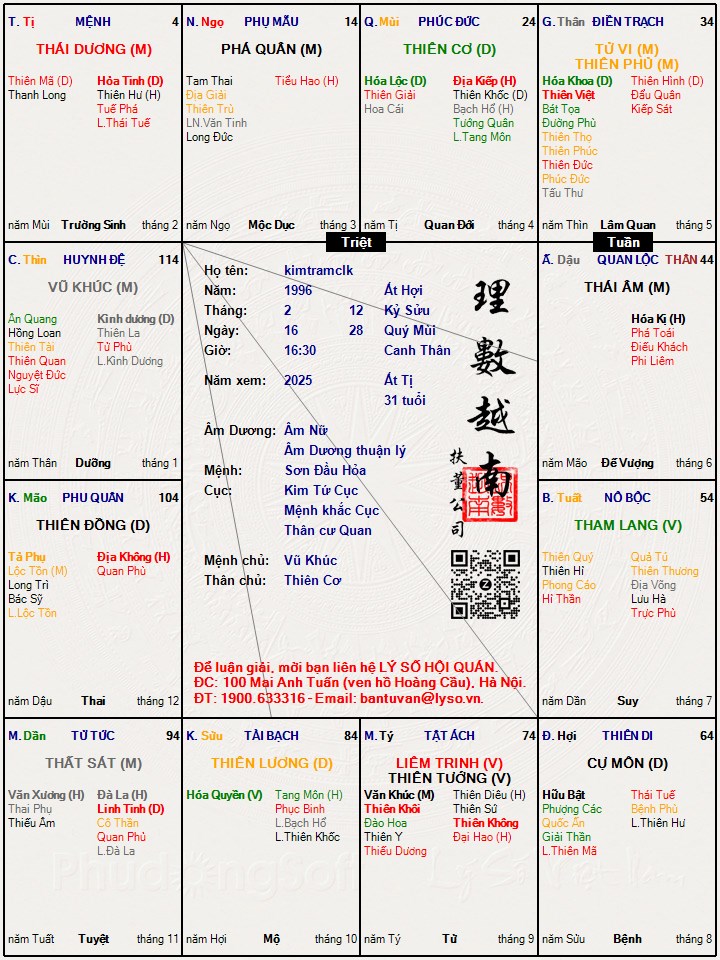 T. Tị MỆNH 4
THÁI DƯƠNG (M)
Thiên Mã (D) Hỏa Tinh (D)
Thanh Long Thiên Hư (H)
Tuế Phá
L.Thái Tuế
năm Mùi Trường Sinh tháng 2
N. Ngọ PHỤ MẪU 14
PHÁ QUÂN (M)
Tam Thai Tiểu Hao (H)
Địa Giải
Thiên Trù
LN.Văn Tinh
Long Đức
năm Ngọ Mộc Dục tháng 3
Q. Mùi PHÚC ĐỨC 24
THIÊN CƠ (D)
Hóa Lộc (D) Địa Kiếp (H)
Thiên Giải Thiên Khốc (D)
Hoa Cái Bạch Hổ (H)
Tướng Quân
L.Tang Môn
năm Tị Quan Đới tháng 4
G. Thân ĐIỀN TRẠCH 34
TỬ VI (M)
THIÊN PHỦ (M)
Hóa Khoa (D) Thiên Hình (D)
Thiên Việt Đẩu Quân
Bát Tọa Kiếp Sát
Đường Phù
Thiên Thọ
Thiên Phúc
Thiên Đức
Phúc Đức
Tấu Thư
năm Thìn Lâm Quan tháng 5
Triệt
Tuần
C. Thìn HUYNH ĐỆ 114
VŨ KHÚC (M)
Ân Quang Kình dương (D)
Hồng Loan Thiên La
Thiên Tài Tử Phù
Thiên Quan L.Kình Dương
Nguyệt Đức
Lực Sĩ
năm Thân Dưỡng tháng 1
Họ tên: kimtramclk
Năm: 1996 Ất Hợi
Tháng: 2 12 Kỷ Sửu
Ngày: 16 28 Quý Mùi
Giờ: 16:30 Canh Thân
Năm xem: 2025 Ất Tị
31 tuổi
Âm Dương: Âm Nữ
Âm Dương thuận lý
Mệnh: Sơn Đầu Hỏa
Cục: Kim Tứ Cục
Mệnh khắc Cục
Thân cư Quan
Mệnh chủ: Vũ Khúc
Thân chủ: Thiên Cơ
理數越南
扶董公司
Để luận giải, mời bạn liên hệ LÝ SỐ HỘI QUÁN.
ĐC: 100 Mai Anh Tuấn (ven hồ Hoàng Cầu), Hà Nội.
ĐT: 1900.633316 - Email: bantuvan@lyso.vn.
Ấ. Dậu QUAN LỘC THÂN 44
THÁI ÂM (M)
Hóa Kị (H)
Phá Toái
Điếu Khách
Phi Liêm
năm Mão Đế Vượng tháng 6
K. Mão PHU QUÂN 104
THIÊN ĐỒNG (D)
Tả Phụ Địa Không (H)
Lộc Tồn (M) Quan Phù
Long Trì
Bác Sỹ
L.Lộc Tồn
năm Dậu Thai tháng 12
B. Tuất NÔ BỘC 54
THAM LANG (V)
Thiên Quý Quả Tú
Thiên Hỉ Thiên Thương
Phong Cáo Địa Võng
Hỉ Thần Lưu Hà
Trực Phù
năm Dần Suy tháng 7
M. Dần TỬ TỨC 94
THẤT SÁT (M)
Văn Xương (H) Đà La (H)
Thai Phụ Linh Tinh (D)
Thiếu Âm Cô Thần
Quan Phủ
L.Đà La
năm Tuất Tuyệt tháng 11
K. Sửu TÀI BẠCH 84
THIÊN LƯƠNG (D)
Hóa Quyền (V) Tang Môn (H)
Phục Binh
L.Bạch Hổ
L.Thiên Khốc
năm Hợi Mộ tháng 10
M. Tý TẬT ÁCH 74
LIÊM TRINH (V)
THIÊN TƯỚNG (V)
Văn Khúc (M) Thiên Diêu (H)
Thiên Khôi Thiên Sứ
Đào Hoa Thiên Không
Thiên Y Đại Hao (H)
Thiếu Dương
năm Tý Tử tháng 9
Đ. Hợi THIÊN DI 64
CỰ MÔN (D)
Hữu Bật Thái Tuế
Phượng Các Bệnh Phù
Quốc Ấn L.Thiên Hư
Giải Thần
L.Thiên Mã
năm Sửu Bệnh tháng 8